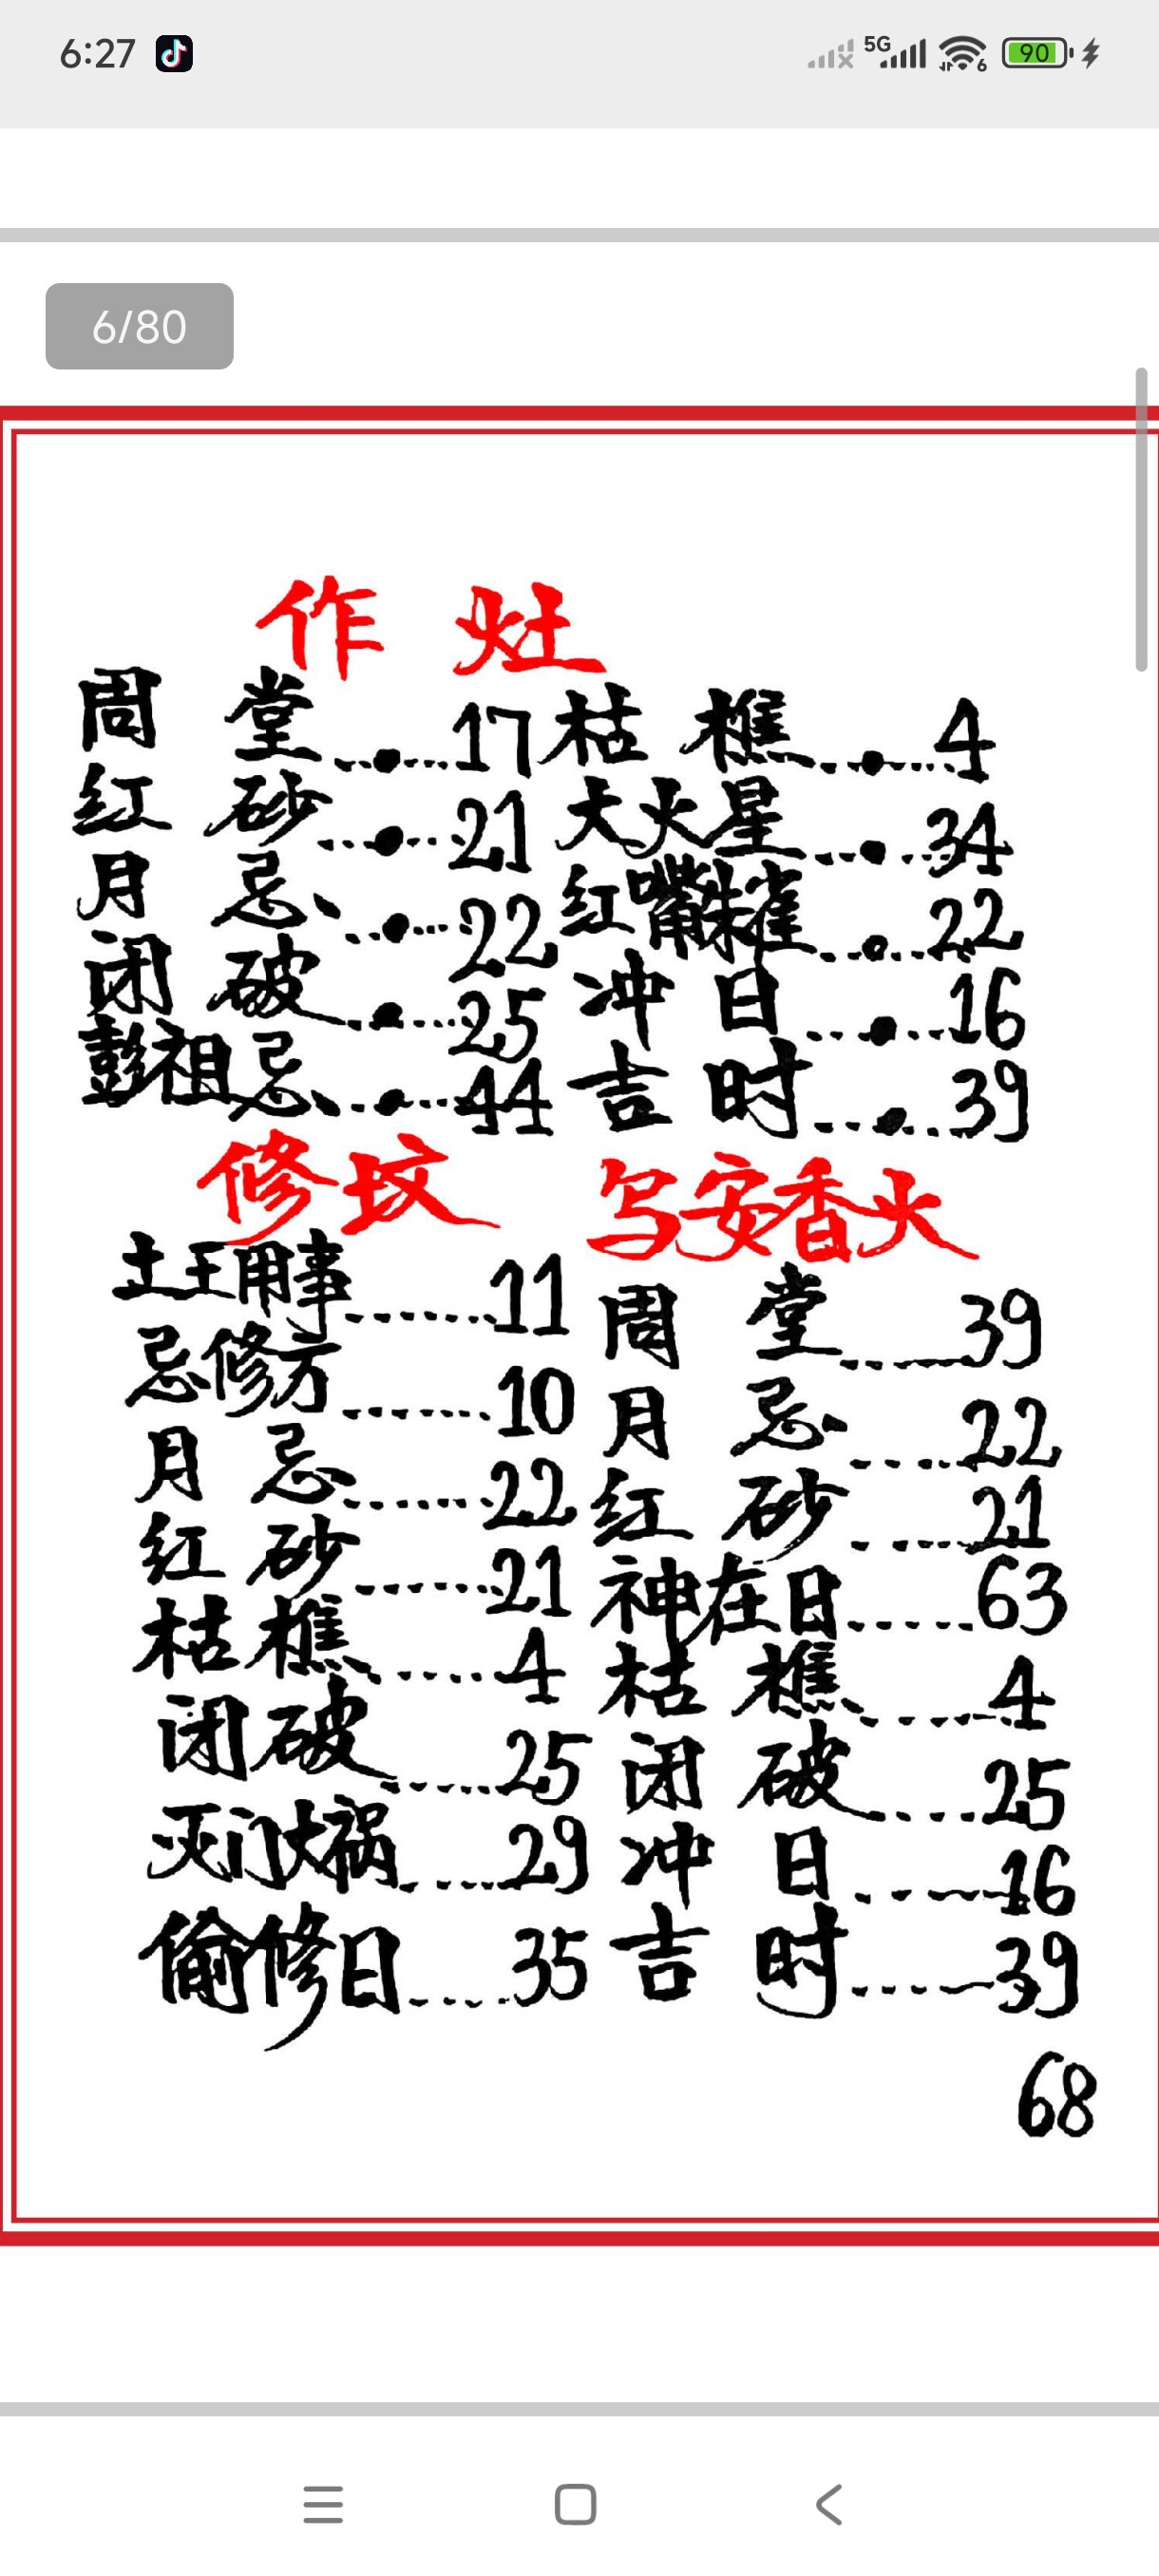 6:27
5G
6
90
6/80
作 灶
周 堂......17 枯 樵......4
红 砂......21 大火星......34
月 忌......22 红嘴朱雀......22
闭 破......25 冲 日......16
彭祖忌......44 吉 时......39
修坟 写安香火
土王用事......11 周 堂......39
忌修方......10 月 忌......22
月 忌......22 红 砂......21
红 砂......21 神在日......63
枯樵......4 枯 樵......4
闭破......25 闭 破......25
灭门大祸......29 冲 日......16
偷修日......35 吉 时......39
68